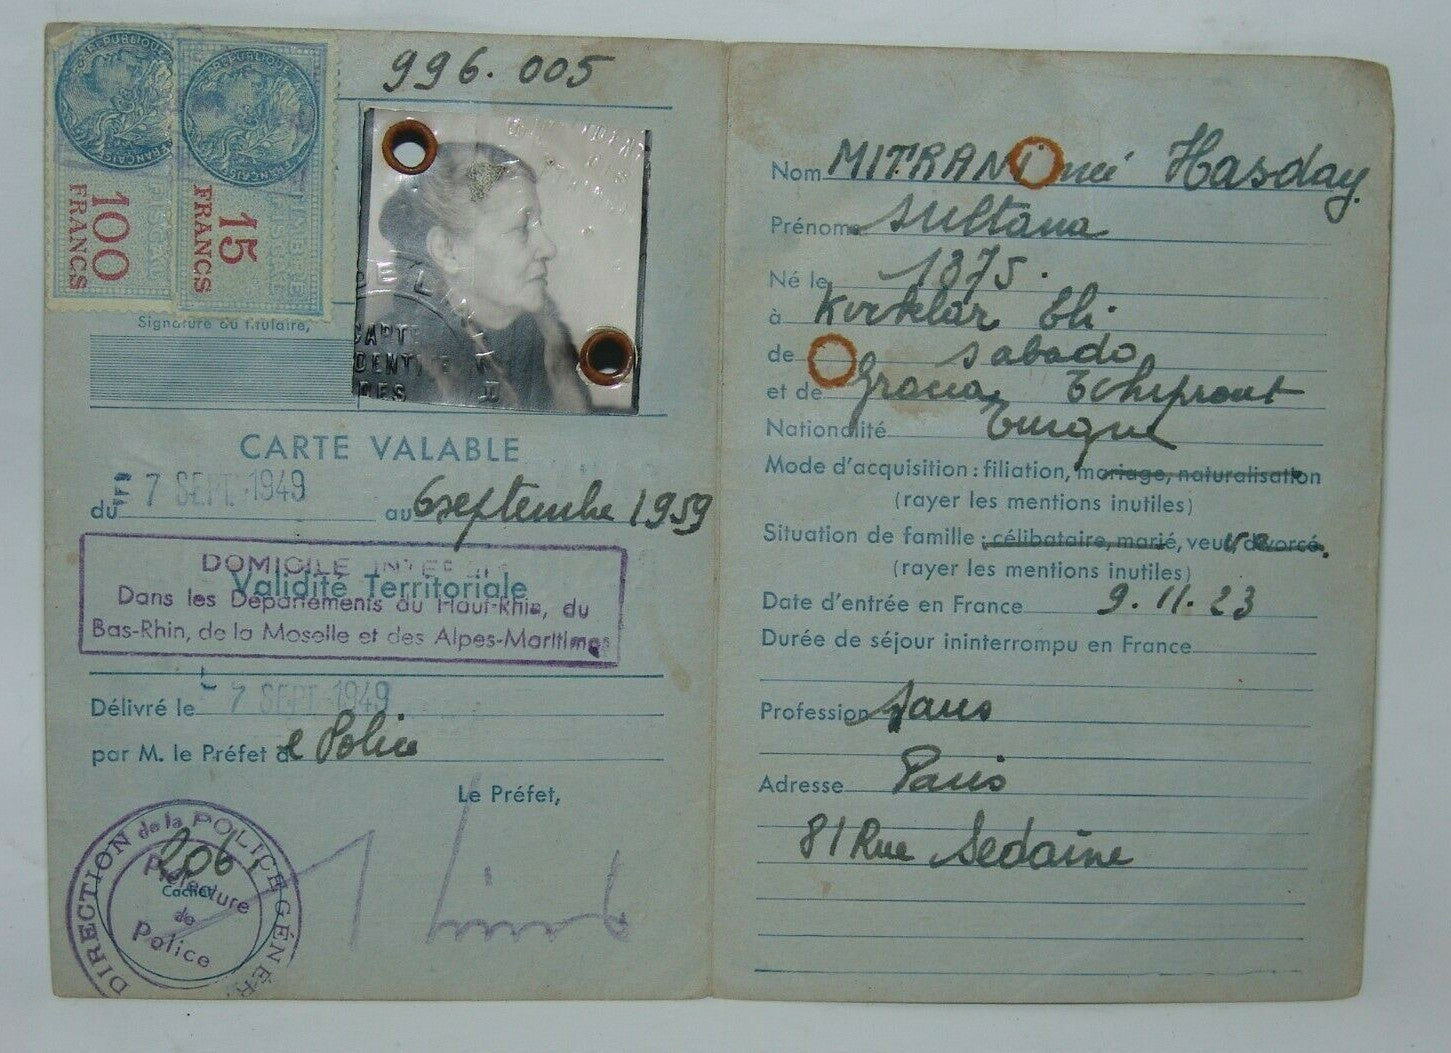 RÉPUBLIQUE FRANÇAISE
100 FRANCS
RÉPUBLIQUE FRANÇAISE
15 FRANCS
996.005
CARTE
Signature du titulaire,
CARTE VALABLE
du 7 SEPT 1949 au 6 septembre 1959
Validité Territoriale
DOMICILE INTERDIT
Dans les Départements du Haut-Rhin, du
Bas-Rhin, de la Moselle et des Alpes-Maritimes
Délivré le 7 SEPT 1949
par M. le Préfet de Police
Le Préfet,
206
Cachet
DIRECTION de la POLICE GÉNÉR
Préfecture
de
Police
Nom MITRANI née Hasday
Prénoms Sultana
Né le 1875.
à Kirklar Eli
de Sabado
et de Gracia
Nationalité Turque
Mode d'acquisition : filiation, mariage, naturalisation
(rayer les mentions inutiles)
Situation de famille : célibataire, marié, veuve, divorcé.
(rayer les mentions inutiles)
Date d'entrée en France 9.11.23
Durée de séjour ininterrompu en France
Profession Sans
Adresse Paris
81 Rue Sedaine